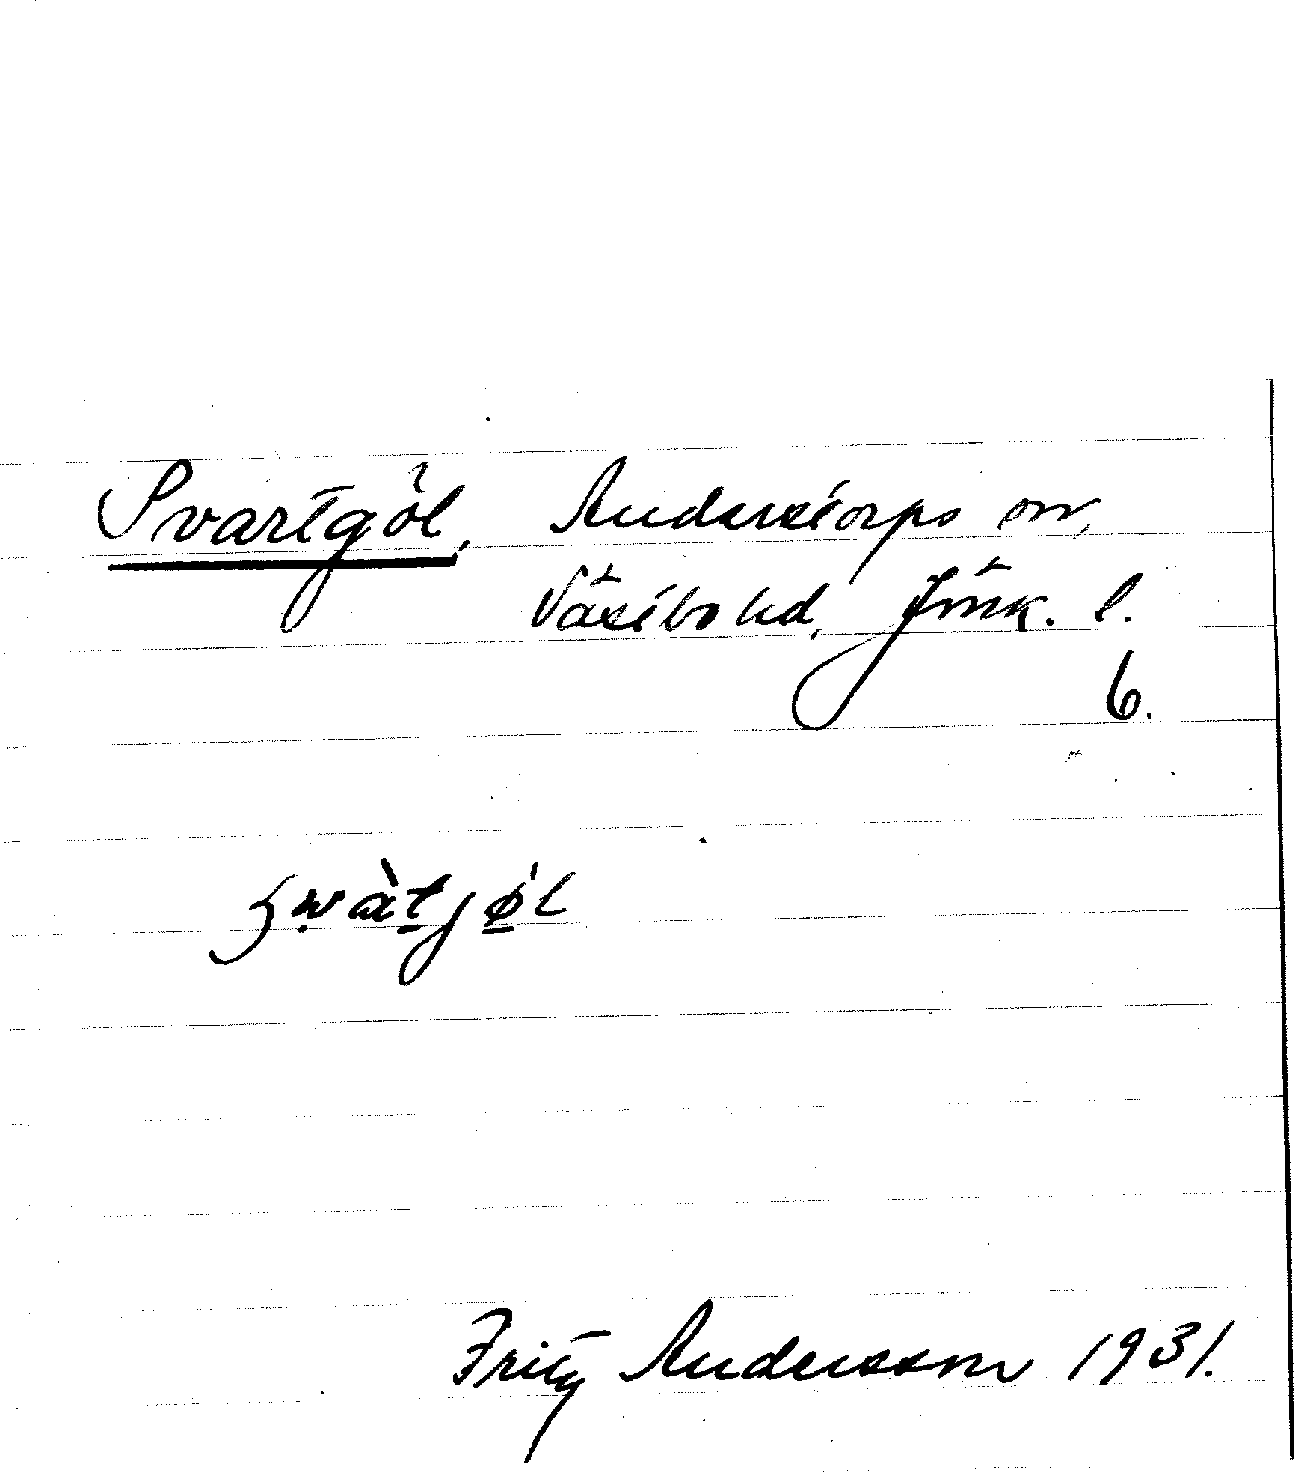 Svartgöl, Anderstorps sn,
Västbo hd, Jönk. l.
6.
Fritz Andersson 1931.